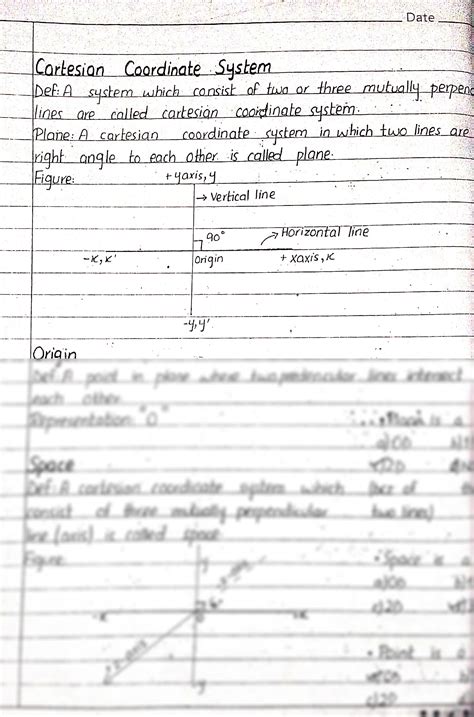 Date
Cartesian Coordinate System
Def: A system which consist of two or three mutually perpend
lines are called cartesian coordinate system.
Plane: A cartesian coordinate system in which two lines are
right angle to each other is called plane.
Figure:
+yaxis, y
→ Vertical line
90°
→ Horizontal line
-x, x'
Origin
+ xaxis, x
-y, y'
Origin
Def: A point in plane where two perdencular lines intersect
each other.
Representation: "O"
Space
Def: A cartesian coordinate system which
consist of three mutually perpendicular
line (axis) is called space
Figure:
two lines)
• Space is a
• Point is a